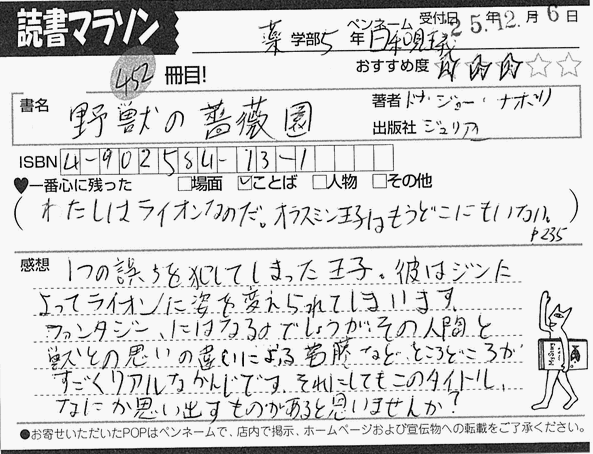 読書マラソン
受付日 25年12月6日
薬学部5年 ペンネーム
452冊目!
おすすめ度 ★★★☆☆
書名 野獣の薔薇園
著者 ドナ・ジョー・ナポリ
出版社 ジュリアン
ISBN 4-902584-13-1
♥一番心に残った □場面 ☑ことば □人物 □その他
(わたしはライオンなのだ。オラスミン王子はもうどこにもいない。)
P235
感想 1つの誤ちを犯してしまった王子。彼はジンに
よってライオンに姿を変えられてしまいます。
ファンタジー、にはなるのでしょうが、その人間と
獣との思いの違いによる葛藤など、ところどころが
すごくリアルなかんじです。それにしてもこのタイトル、
なにか思い出すものがあると思いませんか?
●お寄せいただいたPOPはペンネームで、店内で掲示、ホームページおよび宣伝物への転載をご了承ください。